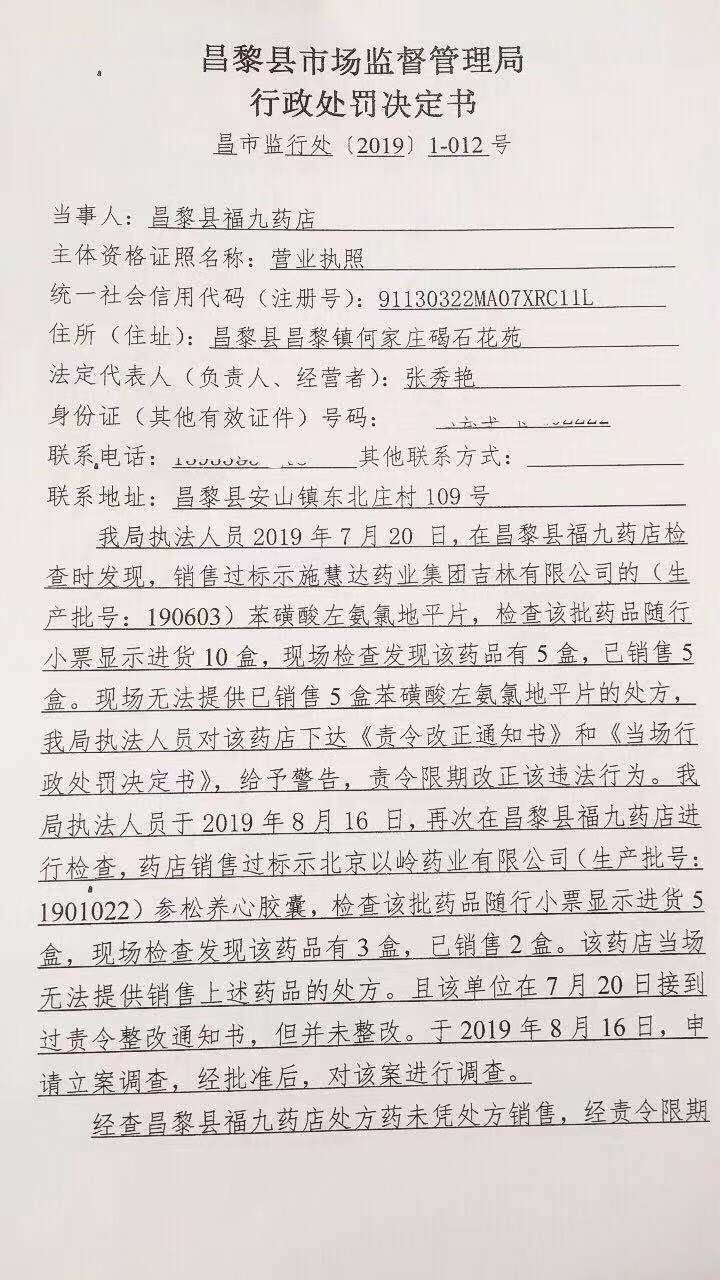 昌黎县市场监督管理局
行政处罚决定书
昌市监行处〔2019〕1-012号
当事人：昌黎县福九药店
主体资格证照名称：营业执照
统一社会信用代码（注册号）：91130322MA07XRC11L
住所（住址）：昌黎县昌黎镇何家庄碣石花苑
法定代表人（负责人、经营者）：张秀艳
身份证（其他有效证件）号码：
联系电话： 其他联系方式：
联系地址：昌黎县安山镇东北庄村109号
我局执法人员2019年7月20 日，在昌黎县福九药店检
查时发现，销售过标示施慧达药业集团吉林有限公司的（生
产批号：190603）苯磺酸左氨氯地平片，检查该批药品随行
小票显示进货10盒，现场检查发现该药品有5盒，已销售5
盒。现场无法提供已销售5盒苯磺酸左氨氯地平片的处方，
我局执法人员对该药店下达《责令改正通知书》和《当场行
政处罚决定书》，给予警告，责令限期改正该违法行为。我
局执法人员于2019年8月16 日，再次在昌黎县福九药店进
行检查，药店销售过标示北京以岭药业有限公司（生产批号：
1901022）参松养心胶囊，检查该批药品随行小票显示进货5
盒，现场检查发现该药品有3盒，已销售2盒。该药店当场
无法提供销售上述药品的处方。且该单位在7月20日接到
过责令整改通知书，但并未整改。于2019年8月16日，申
请立案调查，经批准后，对该案进行调查。
经查昌黎县福九药店处方药未凭处方销售，经责令限期